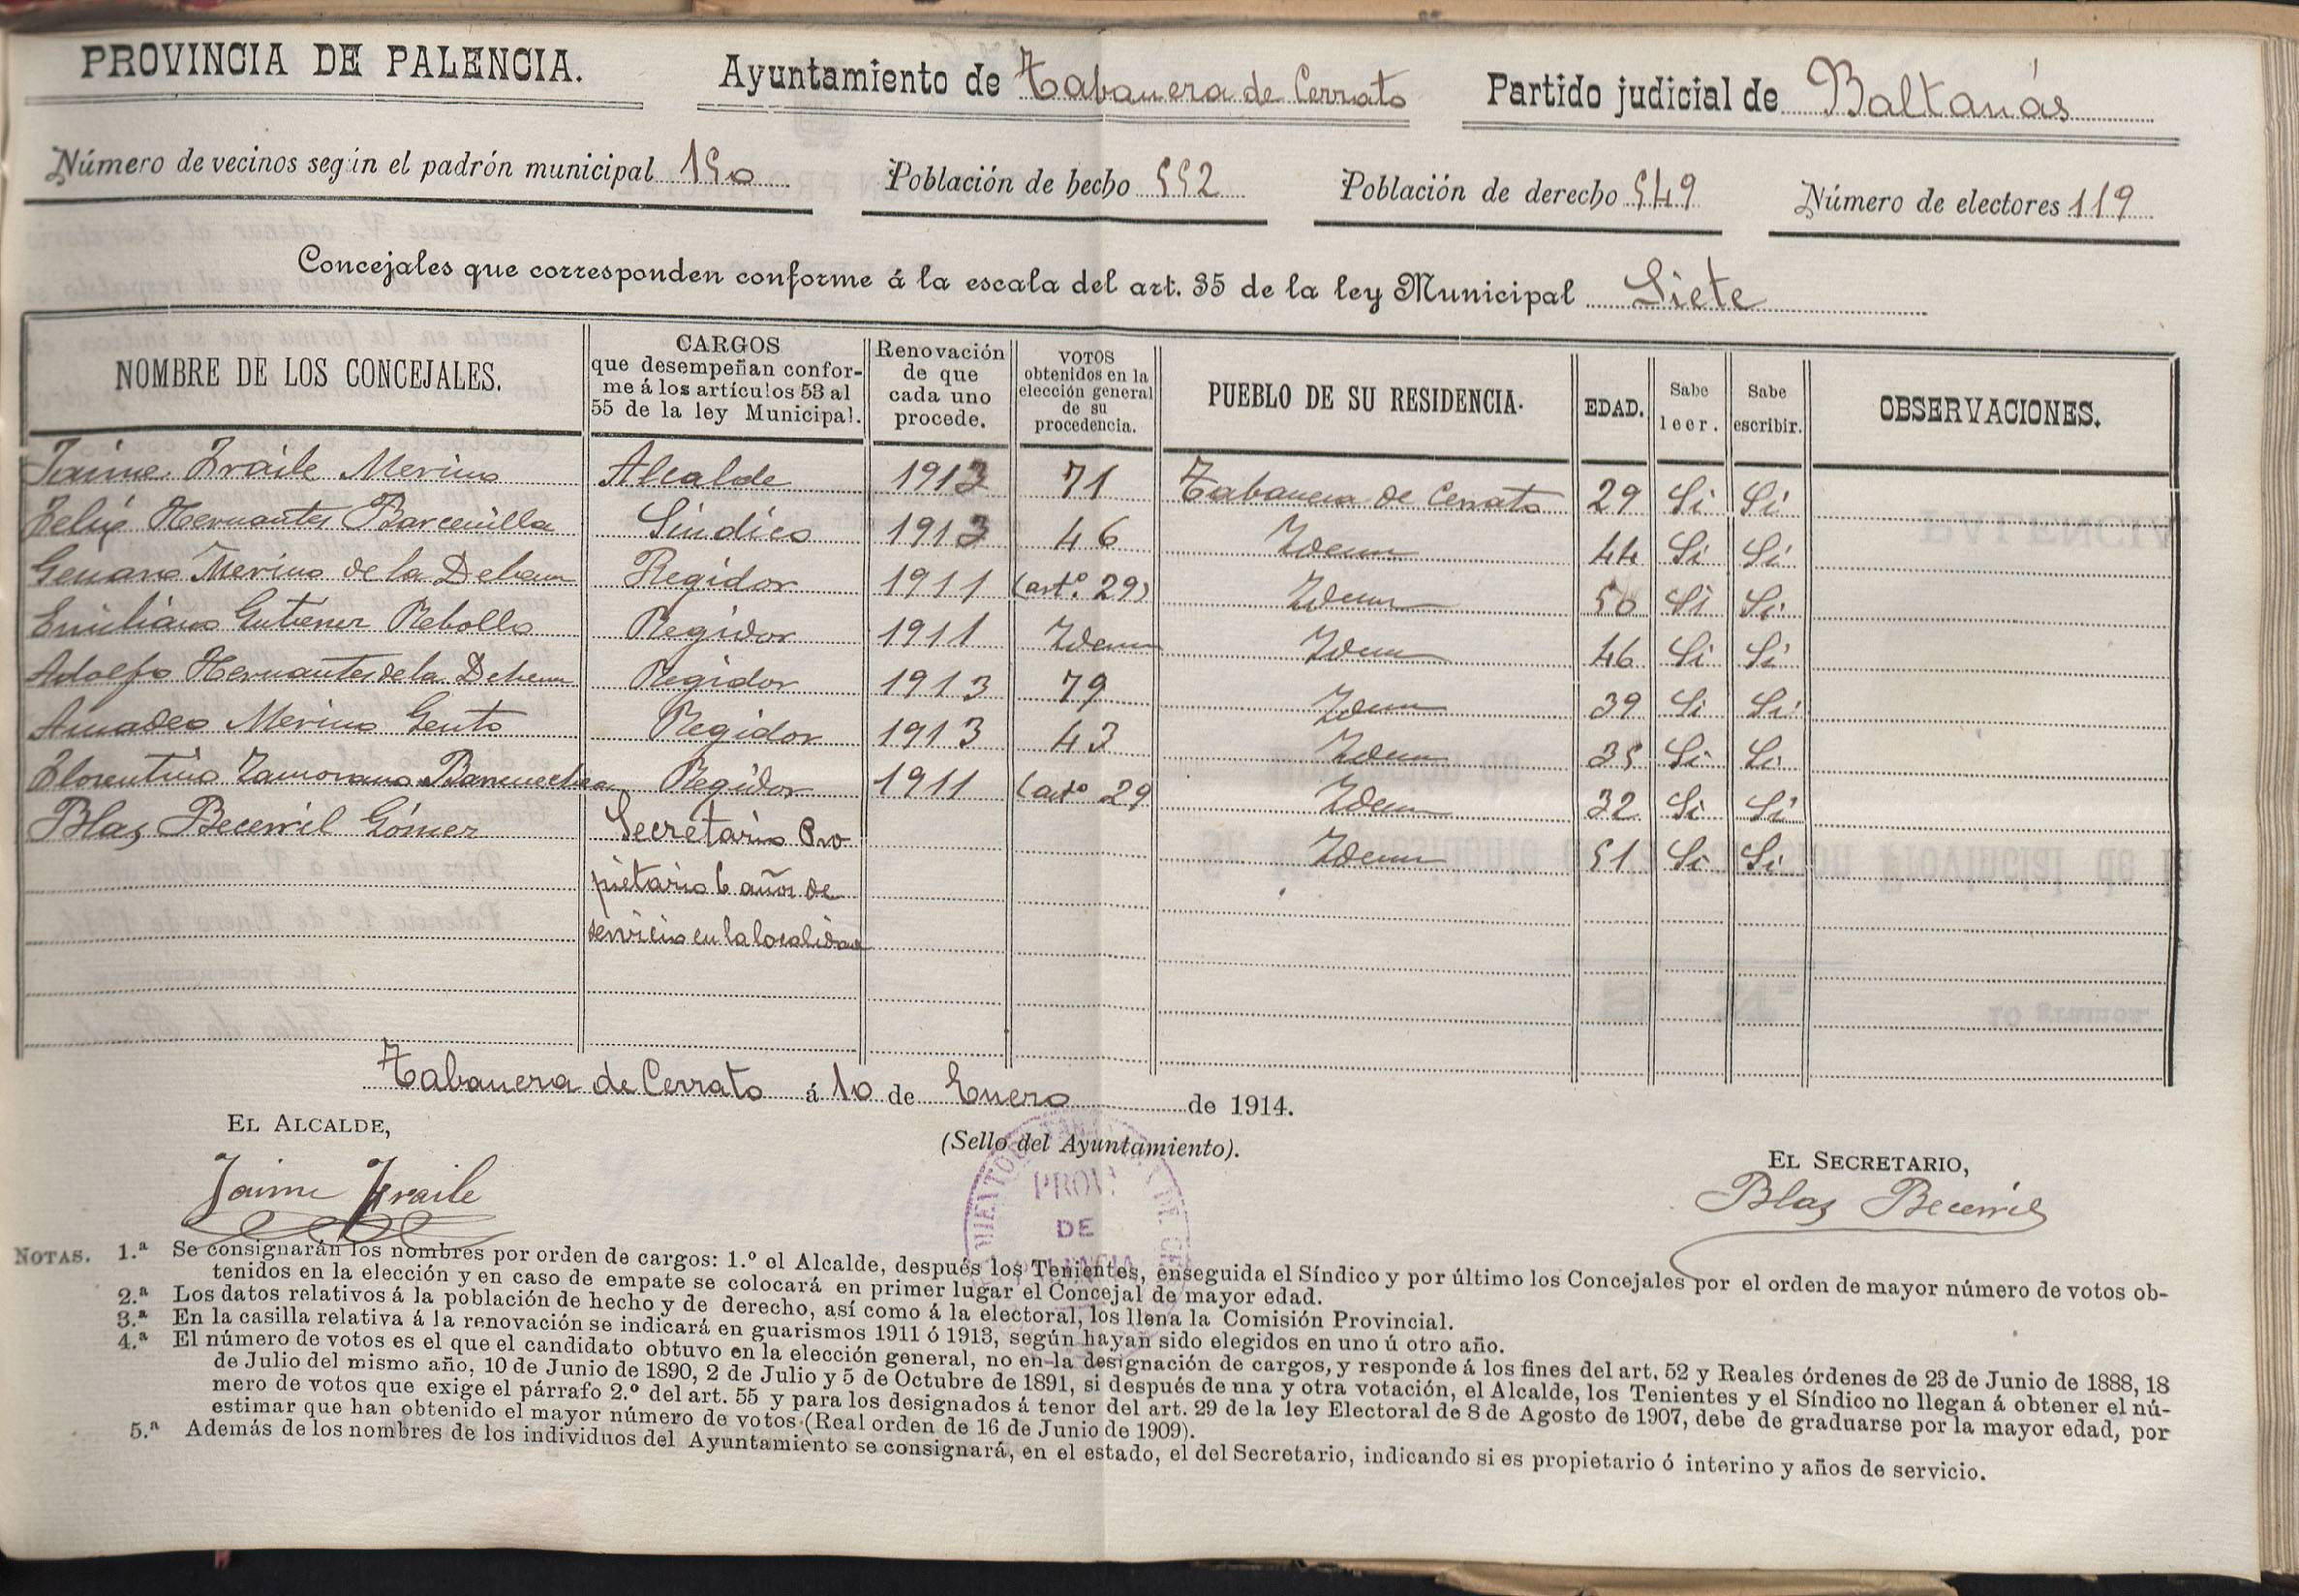 PROVINCIA DE PALENCIA. Ayuntamiento de Tabanera de Cerrato Partido judicial de Baltanás
Número de vecinos según el padrón municipal 150 Población de hecho 552 Población de derecho 549 Número de electores 119
Concejales que corresponden conforme á la escala del art. 35 de la ley Municipal Siete
NOMBRE DE LOS CONCEJALES. CARGOS que desempeñan confor-me á los artículos 53 al 55 de la ley Municipal. Renovación de que cada uno procede. VOTOS obtenidos en la elección general de su procedencia. PUEBLO DE SU RESIDENCIA. EDAD. Sabe leer. Sabe escribir. OBSERVACIONES.
Jaime Fraile Merino Alcalde 1913 71 Tabanera de Cerrato 29 Si Si
Felix Hernantes Barcenilla Sindico 1913 46 Idem 44 Si Si
Genaro Merino de la Dehesa Regidor 1911 (artº. 29) Idem 50 Si Si
Emiliano Gutierrez Rebollo Regidor 1911 Idem Idem 46 Si Si
Adolfo Hernantes de la Dehesa Regidor 1913 79 Idem 39 Si Si
Amadeo Merino Gento Regidor 1913 43 Idem 35 Si Si
Florentino Zamorano Barrenechea Regidor 1911 (artº 29 Idem 32 Si Si
Blas Becerril Gómez Secretario Pro Idem 51 Si Si
pietario 6 años de
servicio en la localidad
Tabanera de Cerrato á 10 de Enero de 1914.
EL ALCALDE, (Sello del Ayuntamiento). EL SECRETARIO,
Jaime Fraile Blas Becerril
PROV.
DE
NOTAS. 1.ª Se consignarán los nombres por orden de cargos: 1.º el Alcalde, después los Tenientes, enseguida el Síndico y por último los Concejales por el orden de mayor número de votos ob-
tenidos en la elección y en caso de empate se colocará en primer lugar el Concejal de mayor edad.
2.ª Los datos relativos á la población de hecho y de derecho, así como á la electoral, los llena la Comisión Provincial.
3.ª En la casilla relativa á la renovación se indicará en guarismos 1911 ó 1913, según hayan sido elegidos en uno ú otro año.
4.ª El número de votos es el que el candidato obtuvo en la elección general, no en la designación de cargos, y responde á los fines del art. 52 y Reales órdenes de 23 de Junio de 1888, 18
de Julio del mismo año, 10 de Junio de 1890, 2 de Julio y 5 de Octubre de 1891, si después de una y otra votación, el Alcalde, los Tenientes y el Síndico no llegan á obtener el nú-
mero de votos que exige el párrafo 2.º del art. 55 y para los designados á tenor del art. 29 de la ley Electoral de 8 de Agosto de 1907, debe de graduarse por la mayor edad, por
estimar que han obtenido el mayor número de votos (Real orden de 16 de Junio de 1909).
5.ª Además de los nombres de los individuos del Ayuntamiento se consignará, en el estado, el del Secretario, indicando si es propietario ó interino y años de servicio.